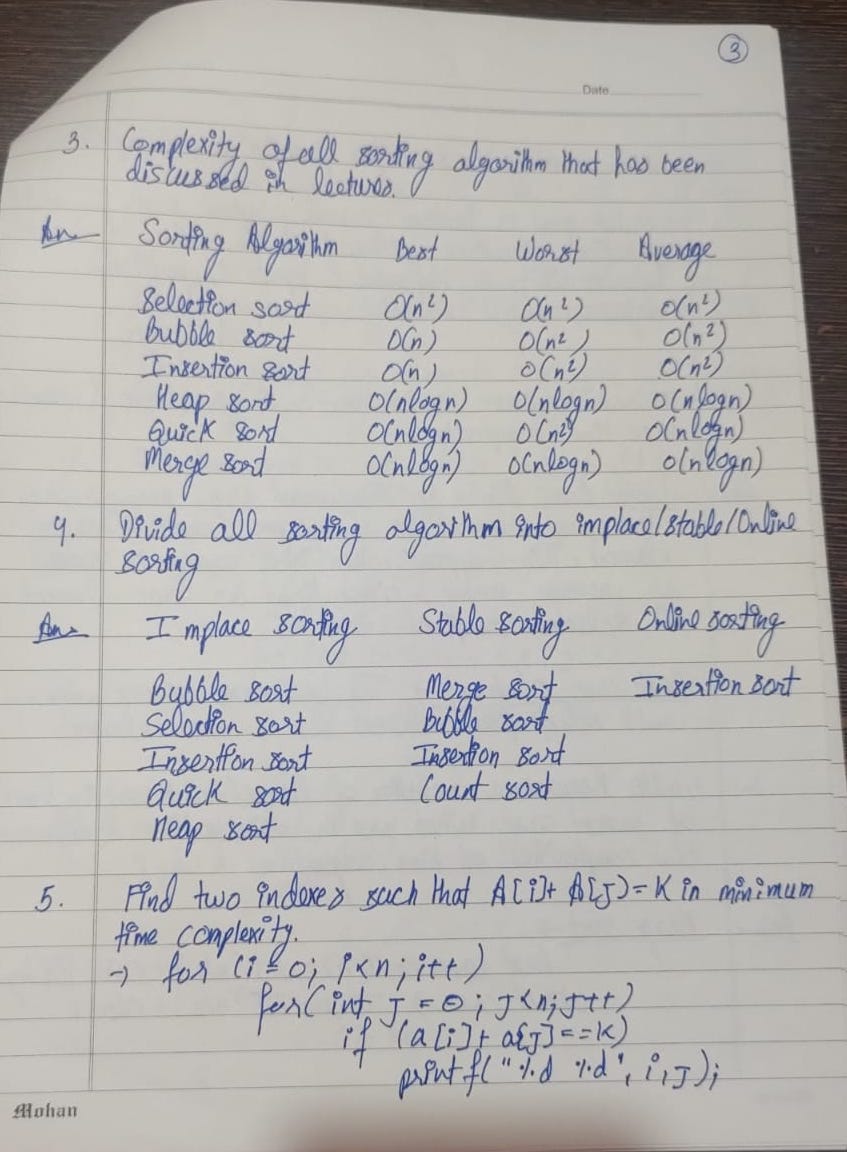 3
Date
3. Complexity of all sorting algorithm that has been
discussed in lectures.
Ans Sorting Algorithm Best Worst Average
Selection sort O(n²) O(n²) O(n²)
Bubble sort O(n) O(n²) O(n²)
Insertion sort O(n) O(n²) O(n²)
Heap sort O(nlogn) O(nlogn) O(nlogn)
Quick sort O(nlogn) O(n²) O(nlogn)
Merge sort O(nlogn) O(nlogn) O(nlogn)
4. Divide all sorting algorithm into implace/stable/Online
sorting
Ans Implace sorting Stable sorting Online sorting
Bubble sort Merge sort Insertion sort
Selection sort Bubble sort
Insertion sort Insertion sort
Quick sort Count sort
Heap sort
5. Find two indexes such that A[i]+ A[J]=K in minimum
time complexity.
→ for (i=0; i<n; i++)
for(int J=0; J<n; J++)
if (a[i]+ a[J]==K)
printf("%d %d", i,J);
Mohan